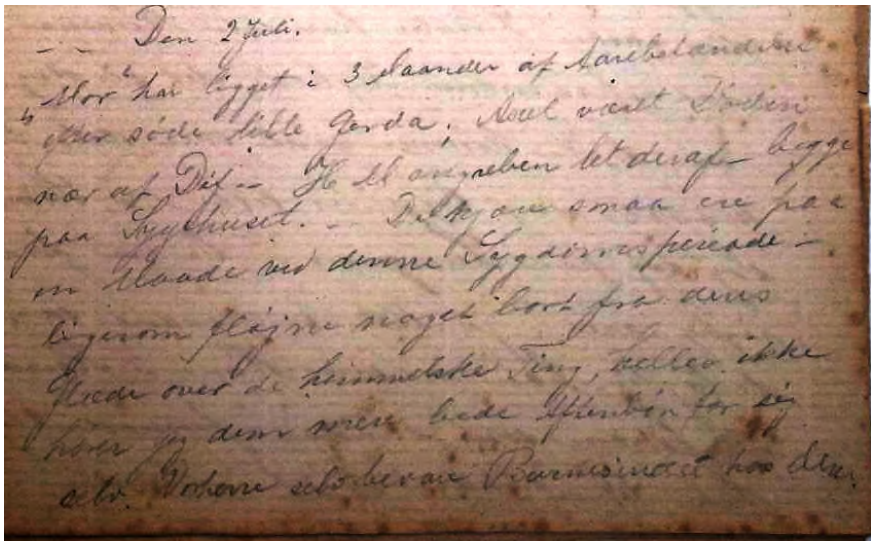 -- Den 2 Juli.
"Mor" har ligget i 3 Maaneder af Aarebetændelse
efter søde lille Gerda; Axel været Døden
nær af Dif. - angreben let deraf - begge
paa Sygehuset. - De smaa ere paa
en Maade ved denne Sygdomsperiode -
ligesom fløjne noget bort fra deres
Glæde over de himmelske Ting, heller ikke
hører jeg dem mere bede Aftenbøn for sig
selv. Vorherre selv bevare Barnesindet hos dem.